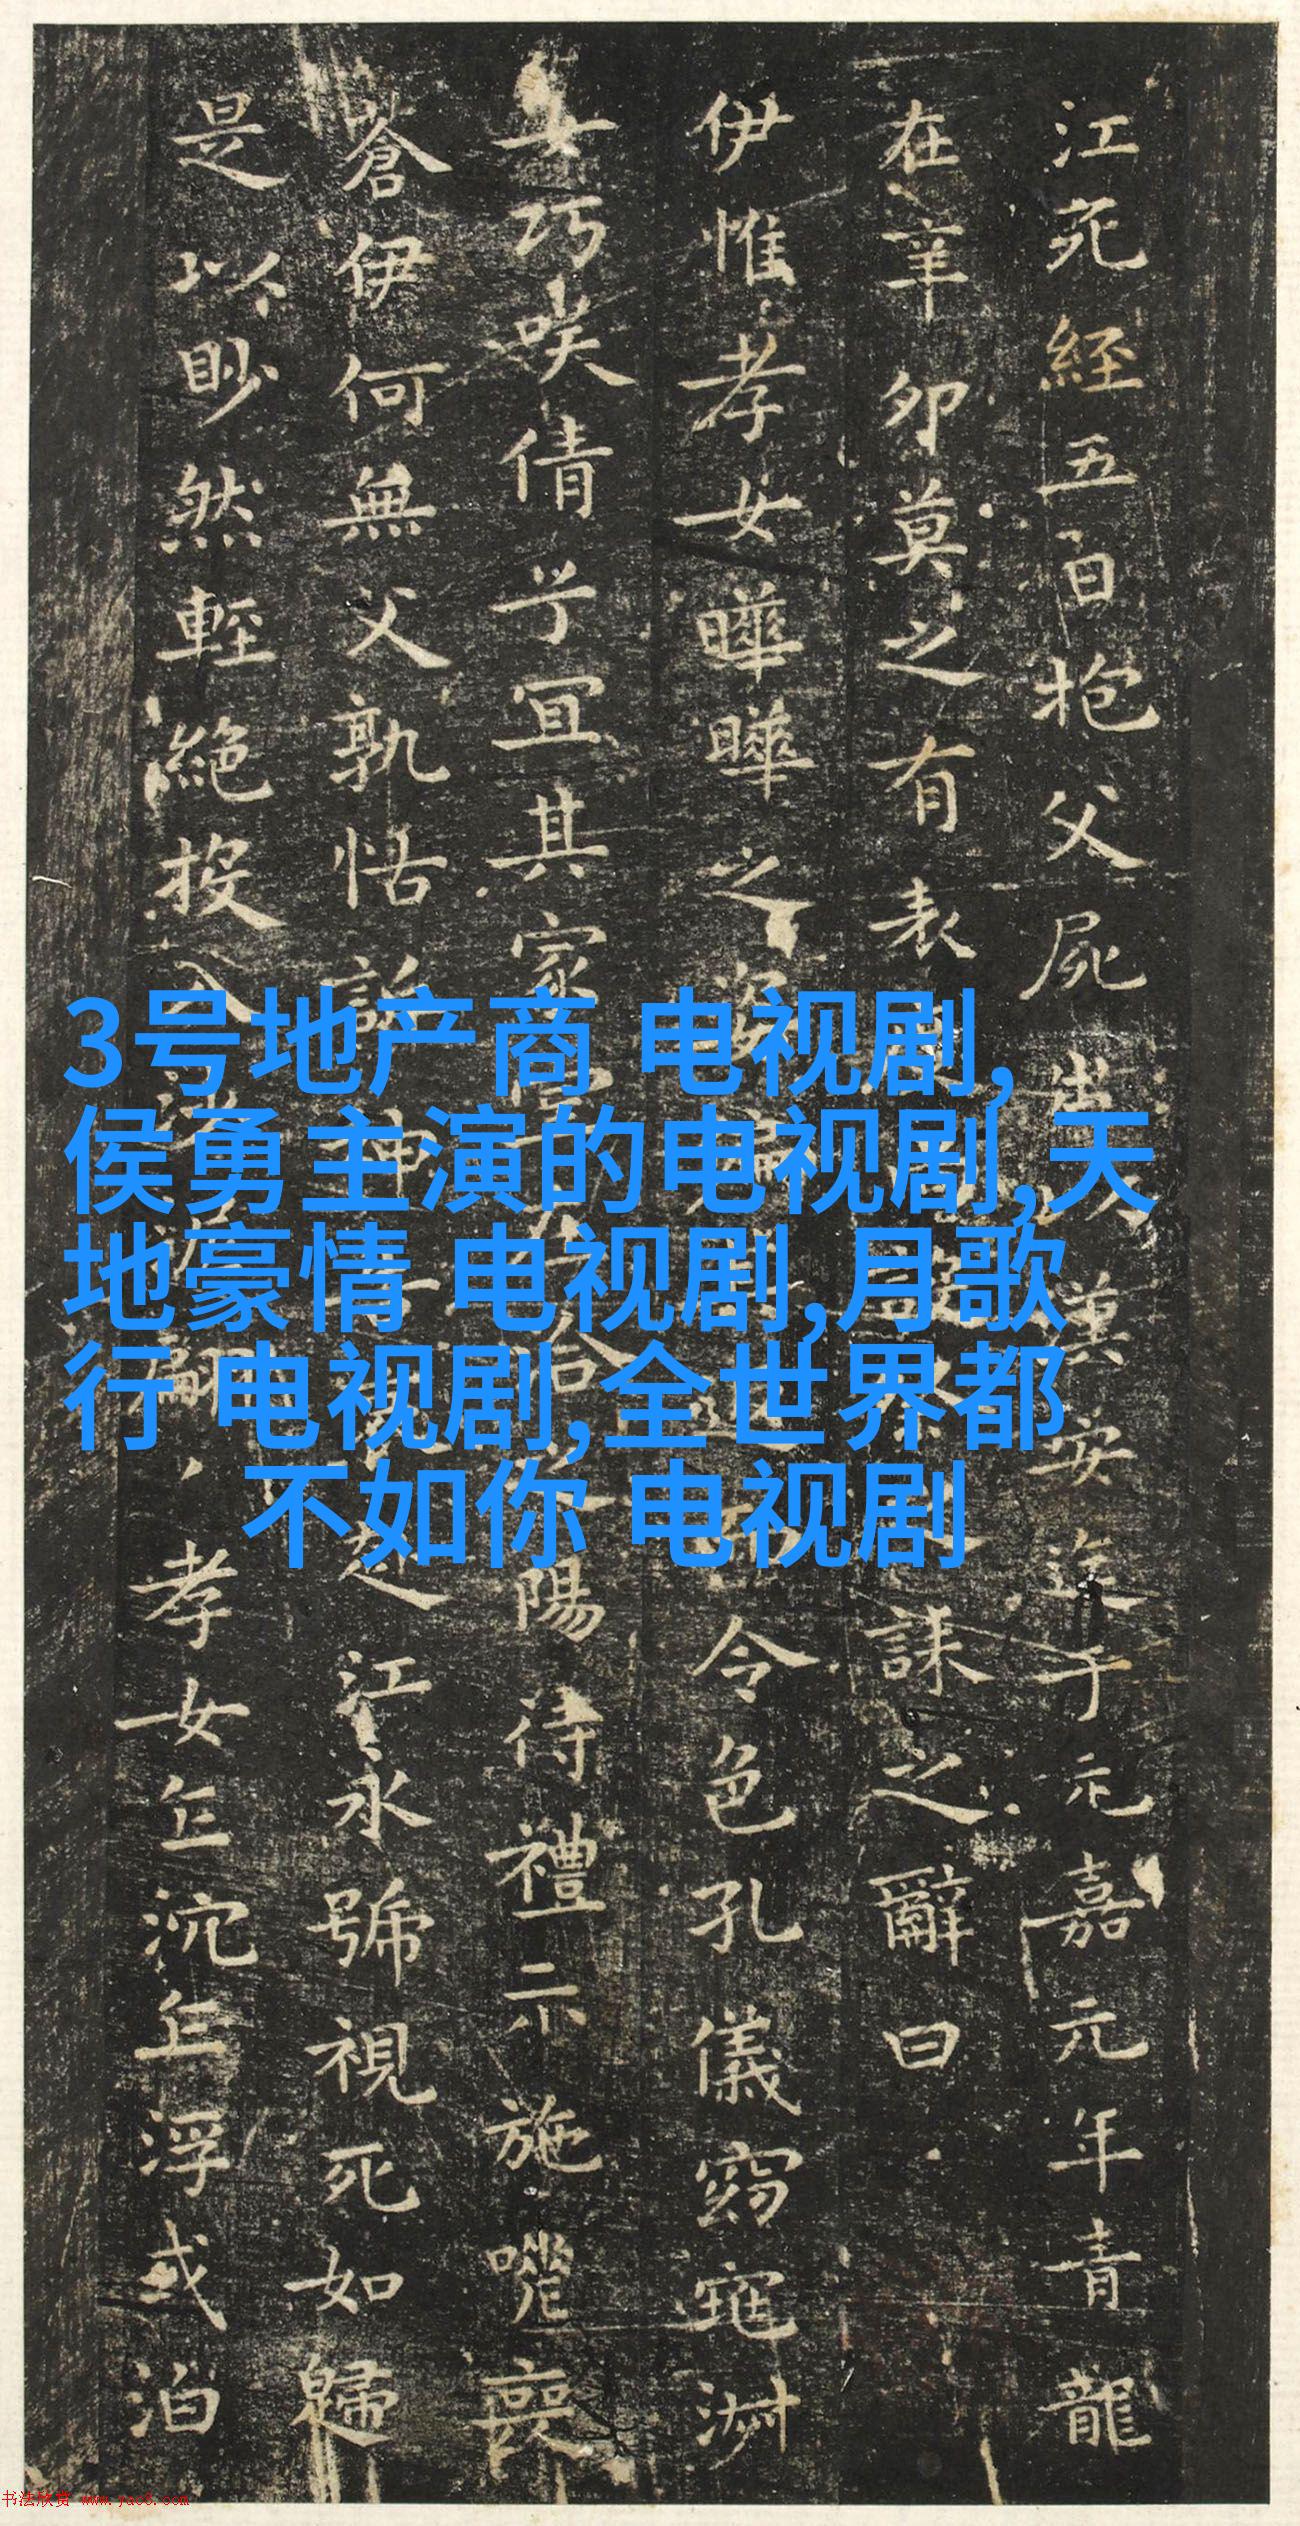 江死經五日抱父屍出以漢安迄于元嘉元年青龍
在辛卯莫之有表誄之辭曰
伊惟孝女曄曄之姿偏令色孔儀窈窕淑
女巧咲倩兮宜其家陽待禮未施嗟喪
蒼伊何無父孰怙訴神江永號視死如歸
是以眇然輕絕投入翩孝女乍沉乍浮或泊
3号地产商 电视剧,
侯勇主演的电视剧,天
地豪情 电视剧,月歌
行 电视剧,全世界都
不如你 电视剧
书法欣赏 www.yac8.com